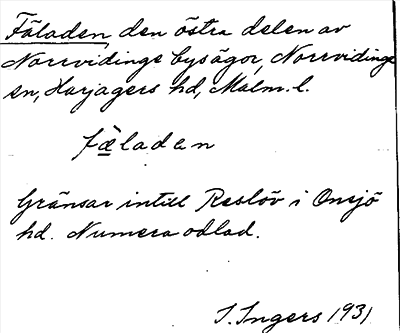 Fäladen, den östra delen av
Norrvidinge bysägor, Norrvidinge
sn, Harjagers hd, Malm. l.
fæ̀laden
Gränsar intill Reslöv i Onsjö
hd. Numera odlad.
I. Ingers 1931